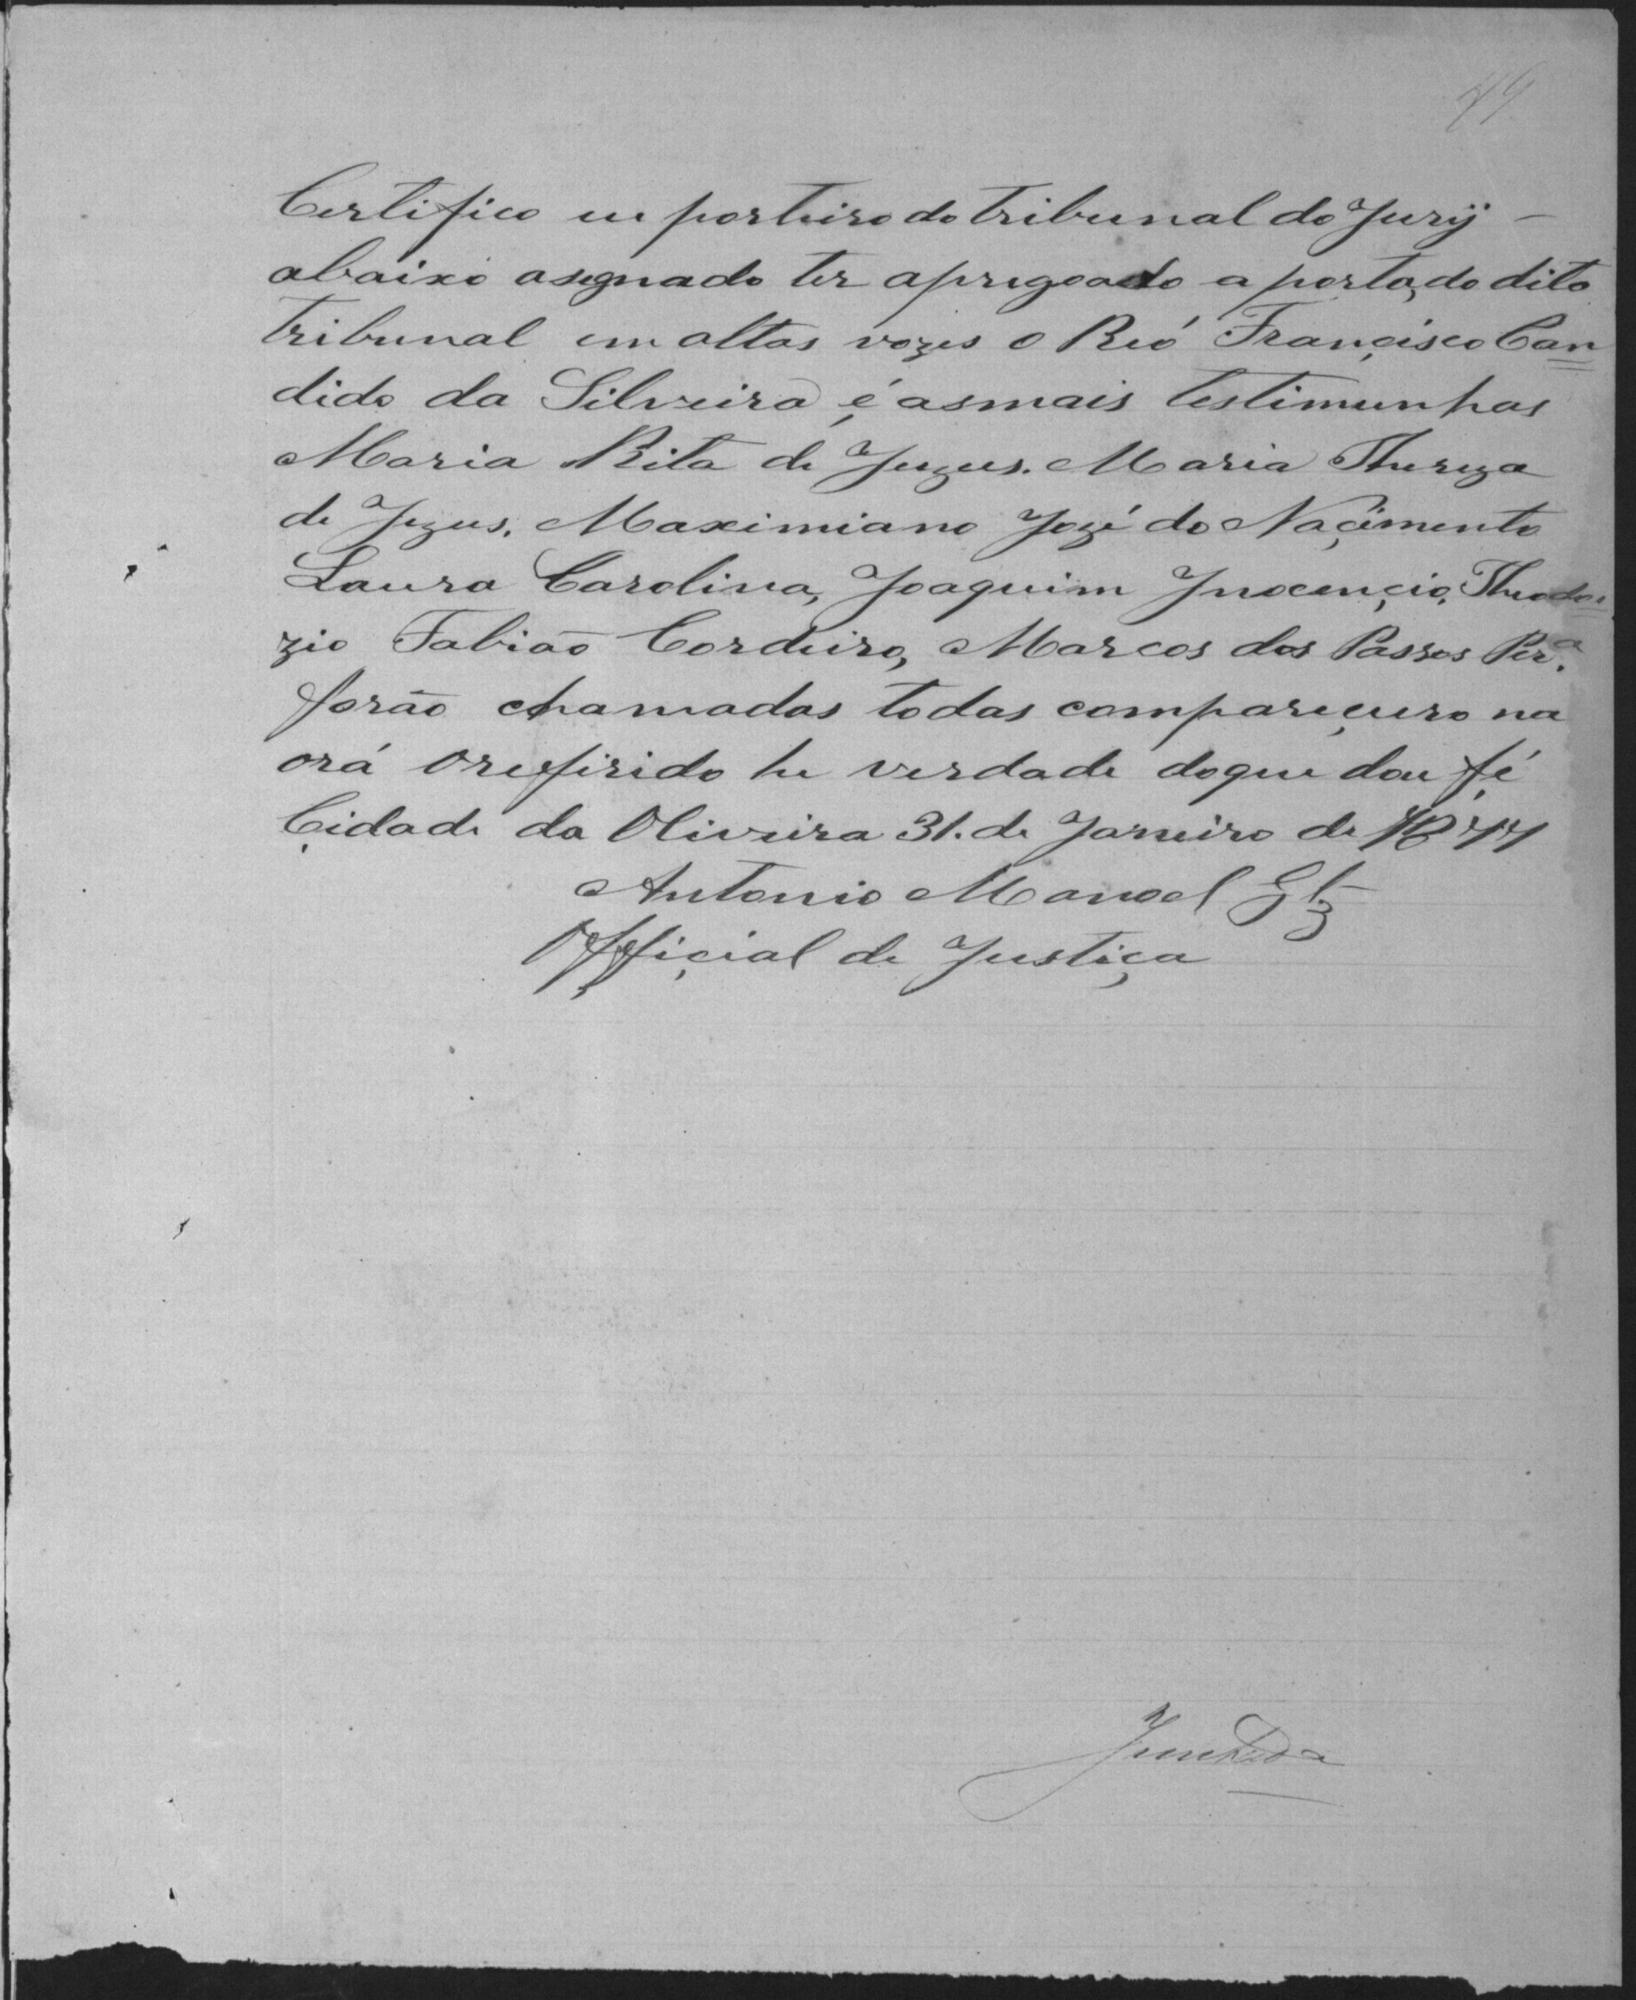 49
Certifico eu porteiro do tribunal do Jury –
abaixo asegnado ter apregoado a porta, do dito
tribunal em altas vozes o Reó Françisco Can=
dido da Silveira é as mais testimunhas
Maria Rita de Jezus. Maria Thereza
de Jezus. Maximiano Jozé do Naçimento
Laura Carolina, Joaquim Inocençio, Theodo=
zio Fabião Cordeiro, Marcos dos Passos Perª.
forão chamadas todas compareçero na
orá o refirido he verdade do que dou fé
Çidade da Oliveira 31. de Janeiro de 1877
Antonio Manoel Glz
Offiçial de Justiça
Juntada